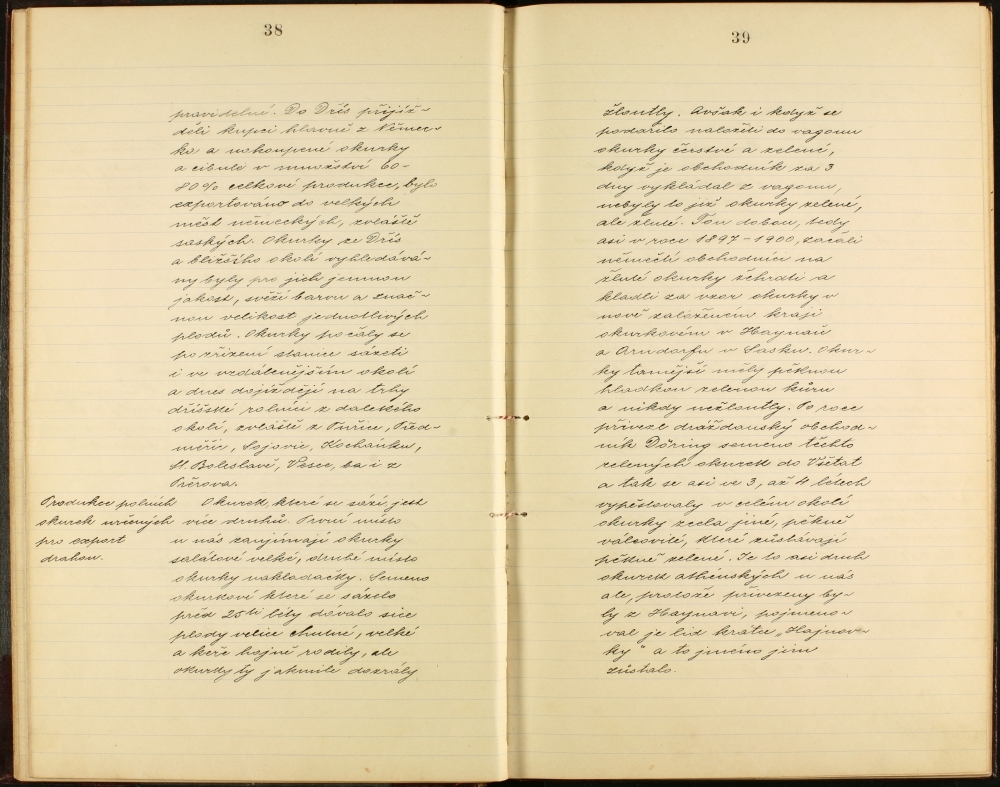 38
pravidelné. Do Dřís přijíž-
děli kupci hlavně z Němec-
ka a nakoupené okurky
a cibule v množství 60-
80% celkové produkce, bylo
exportováno do velkých
měst německých, zvláště
saských. Okurky ze Dřís
a bližšího okolí vyhledává-
ny byly pro jich jemnou
jakost, svěží barvu a znač-
nou velikost jednotlivých
plodů. Okurky počaly se
po zřízení stanice sázeti
i ve vzdálenějším okolí
a dnes dojíždějí na trhy
dříšské rolníci z dalekého
okolí, zvláště z Tuřice, Před-
měřic, Sojovic, Kochánku,
St. Boleslavě, Vesce, ba i z
Přerova.
Produkce polních
okurek určených
pro export
drahou.
Okurek, které se sází, jest
více druhů. První místo
u nás zaujímají okurky
salátové velké, druhé místo
okurky nakladačky. Semeno
okurkové které se sázelo
před 25ti léty dávalo sice
plody velice chutné, velké
a keře hojně rodily, ale
okurky ty jakmile dozrály
39
žloutly. Avšak i když se
podařilo naložiti do vagonu
okurky čerstvé a zelené,
když je obchodník za 3
dny vykládal z vagonu,
nebyly to již okurky zelené,
ale žluté. Tou dobou, tedy
asi v roce 1897-1900, začali
němečtí obchodníci na
žluté okurky žehrati a
kladli za vzor okurky v
nově založeném kraji
okurkovém v Haynaū
a Arndorfu v Sasku. Okur-
ky tamější měly pěknou
hladkou zelenou kůru
a nikdy nežloutly. Po roce
přiveze drážďanský obchod-
ník Döring semeno těchto
zelených okurek do Všetat
a tak se asi ve 3, až 4 létech
vypěstovaly v celém okolí
okurky zcela jiné, pěkně
válcovité, které zůstávají
pěkně zelené. Je to asi druh
okurek athénských u nás
ale, protože přivezeny by-
ly z Haynavi, pojmeno-
val je lid krátce „Hajnov-
ky" a to jméno jim
zůstalo.